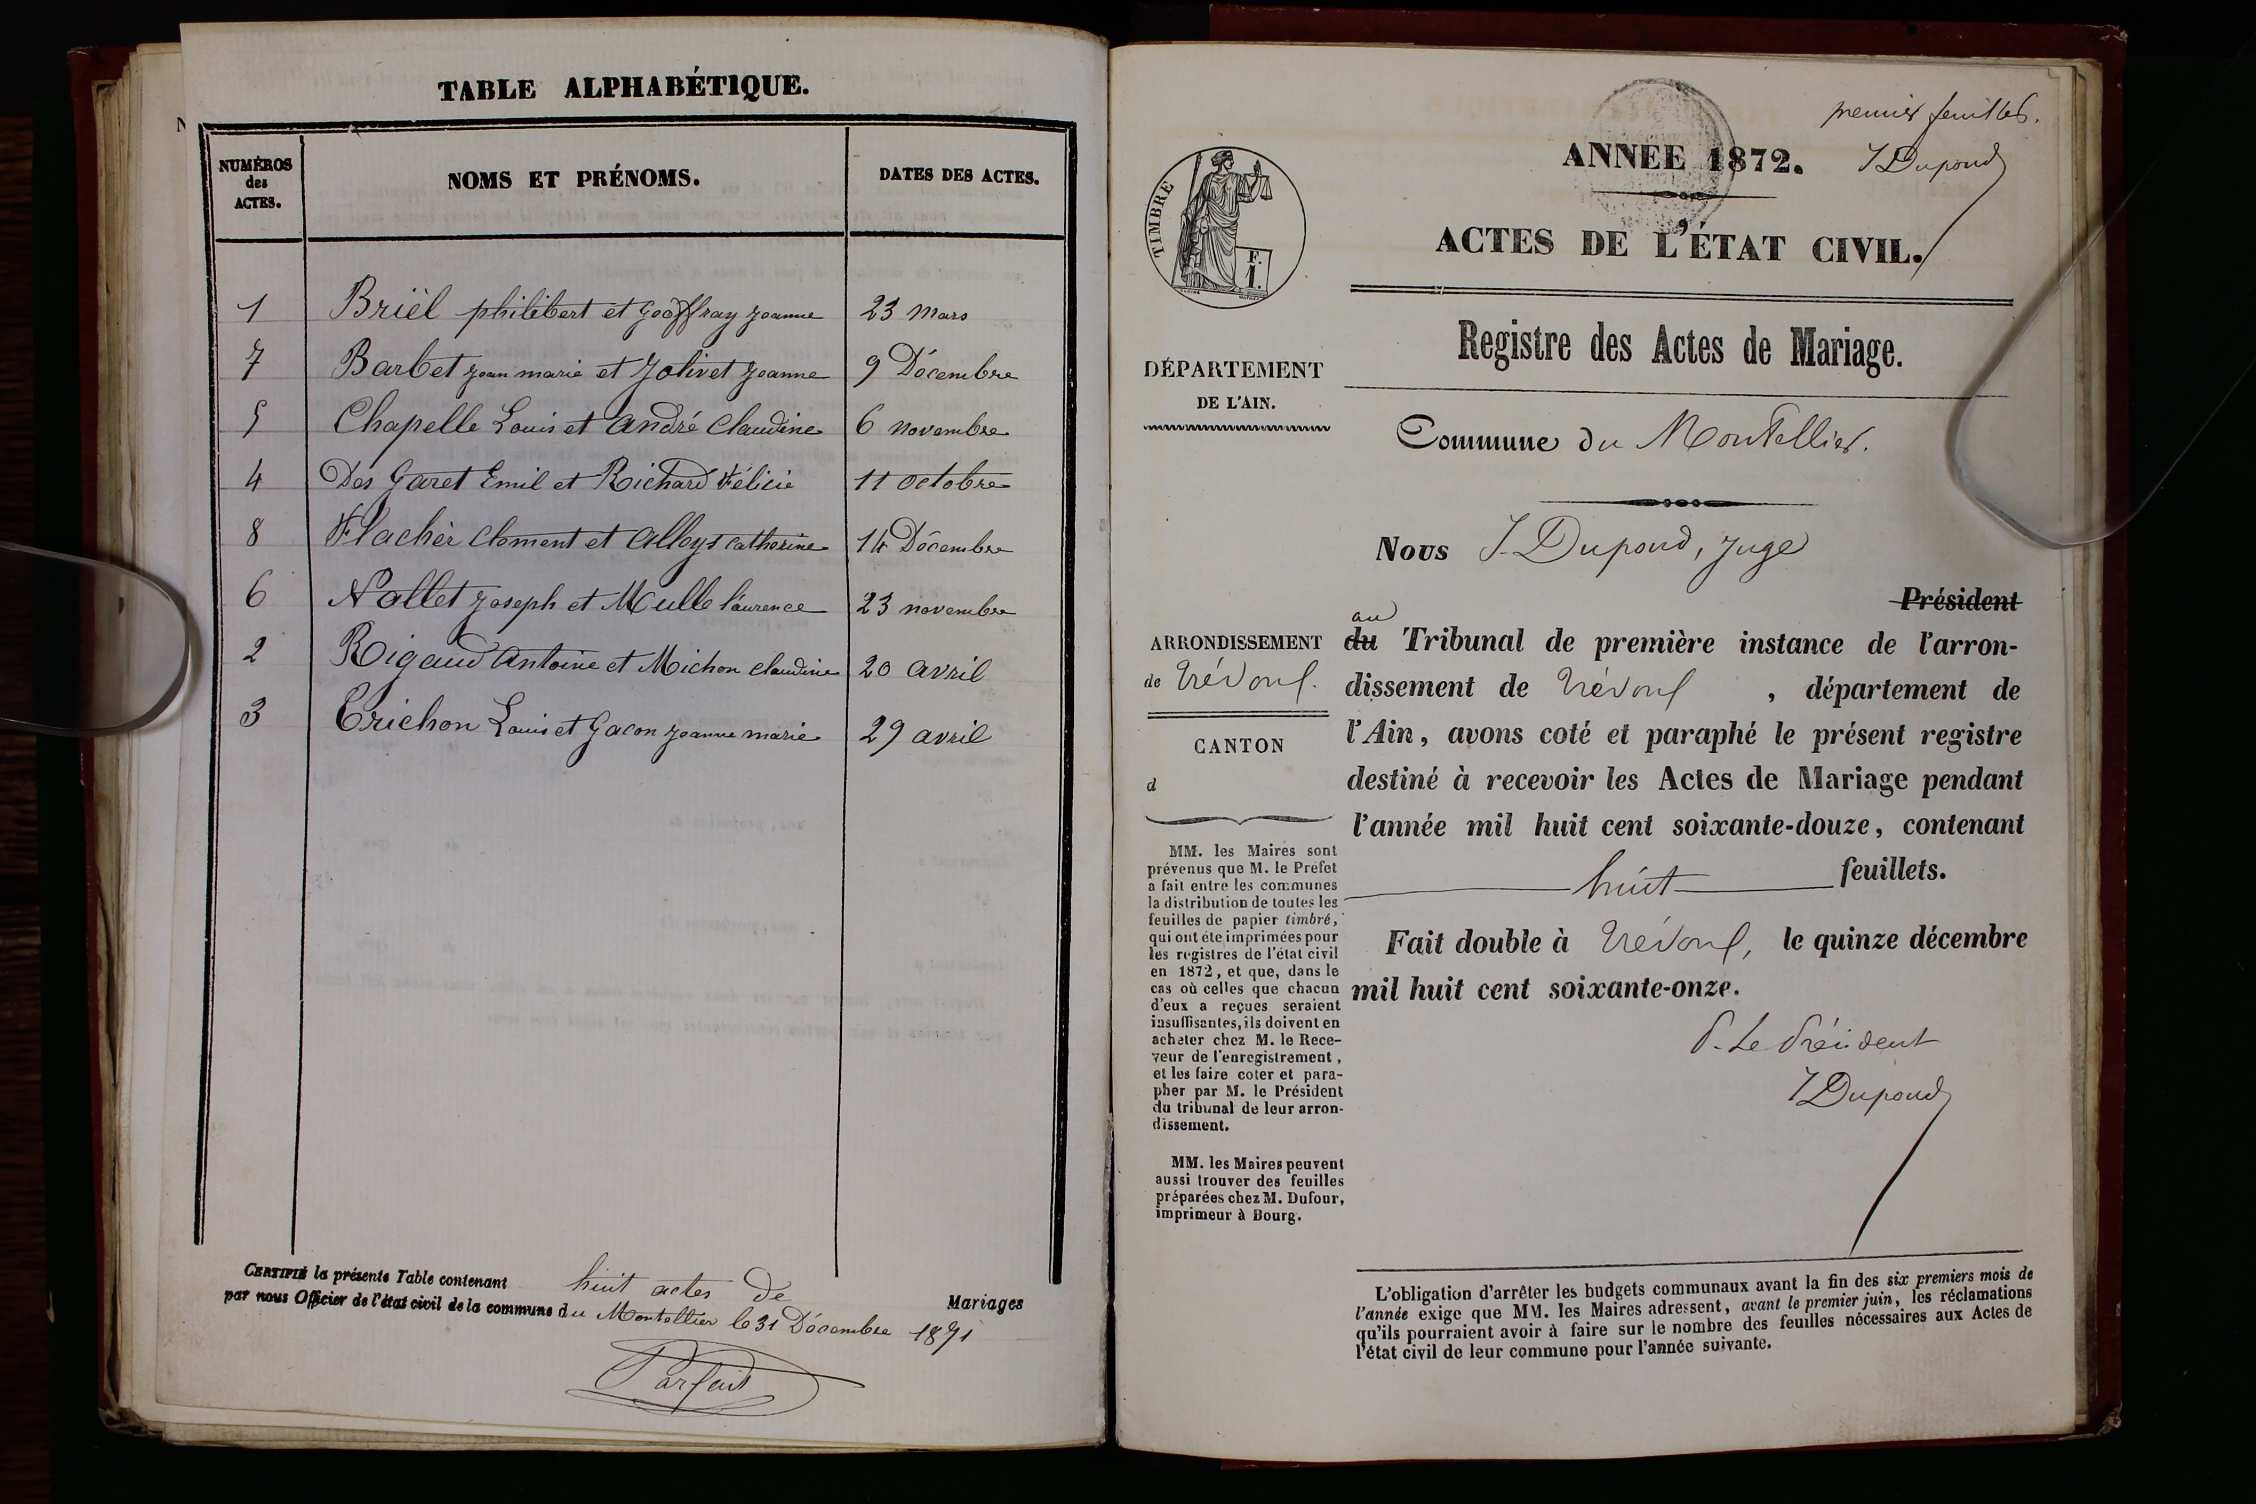 TABLE ALPHABÉTIQUE.
NUMÉROS des ACTES. NOMS ET PRÉNOMS. DATES DES ACTES.
1 Briël philibert et Geoffray jeanne 23 mars
7 Barbet jean marie et Jolivet jeanne 9 Décembre
5 Chapelle Louis et André Claudine 6 novembre
4 Des Garet Emil et Richard Félicie 11 octobre
8 Flacher Clement et Alloys Catherine 14 Décembre
6 Nallet joseph et Mulle laurence 23 novembre
2 Rigaud Antoine et Michon claudine 20 avril
3 Trichon Louis et Gacon jeanne marie 29 avril
CERTIFIÉ la présente Table contenant huit actes de Mariages
par nous Officier de l'état civil de la commune du Montellier le 31 Décembre 1871
premier feuillet.
J Dupond
ANNÉE 1872.
ACTES DE L'ÉTAT CIVIL.
TIMBRE
F.
1.
Registre des Actes de Mariage.
DÉPARTEMENT
DE L'AIN.
Commune du Montellier.
Nous J. Dupond, juge
Président
au
ARRONDISSEMENT
de Trévoux.
CANTON
d
du Tribunal de première instance de l'arron-
dissement de Trévoux, département de
l'Ain, avons coté et paraphé le présent registre
destiné à recevoir les Actes de Mariage pendant
l'année mil huit cent soixante-douze, contenant
huit feuillets.
Fait double à Trévoux, le quinze décembre
mil huit cent soixante-onze.
P. Le Président
J Dupond
MM. les Maires sont
prévenus que M. le Préfet
a fait entre les communes
la distribution de toutes les
feuilles de papier timbré,
qui ont été imprimées pour
les registres de l'état civil
en 1872, et que, dans le
cas où celles que chacun
d'eux a reçues seraient
insuffisantes, ils doivent en
acheter chez M. le Rece-
veur de l'enregistrement,
et les faire coter et para-
pher par M. le Président
du tribunal de leur arron-
dissement.
MM. les Maires peuvent
aussi trouver des feuilles
préparées chez M. Dufour,
imprimeur à Bourg.
L'obligation d'arrêter les budgets communaux avant la fin des six premiers mois de
l'année exige que MM. les Maires adressent, avant le premier juin, les réclamations
qu'ils pourraient avoir à faire sur le nombre des feuilles nécessaires aux Actes de
l'état civil de leur commune pour l'année suivante.